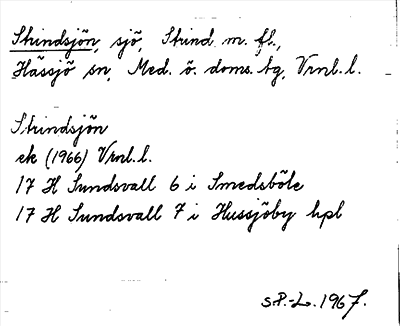 Strindsjön, sjö, Strind m. fl.,
Hässjö sn, Med. ö. doms. tg, Vrnl. l.
Strindsjön
ek (1966) Vrnl. l.
17 H Sundsvall 6 i Smedsböle
17 H Sundsvall 7 i Hussjöby hpl
S.P.-L. 1967.